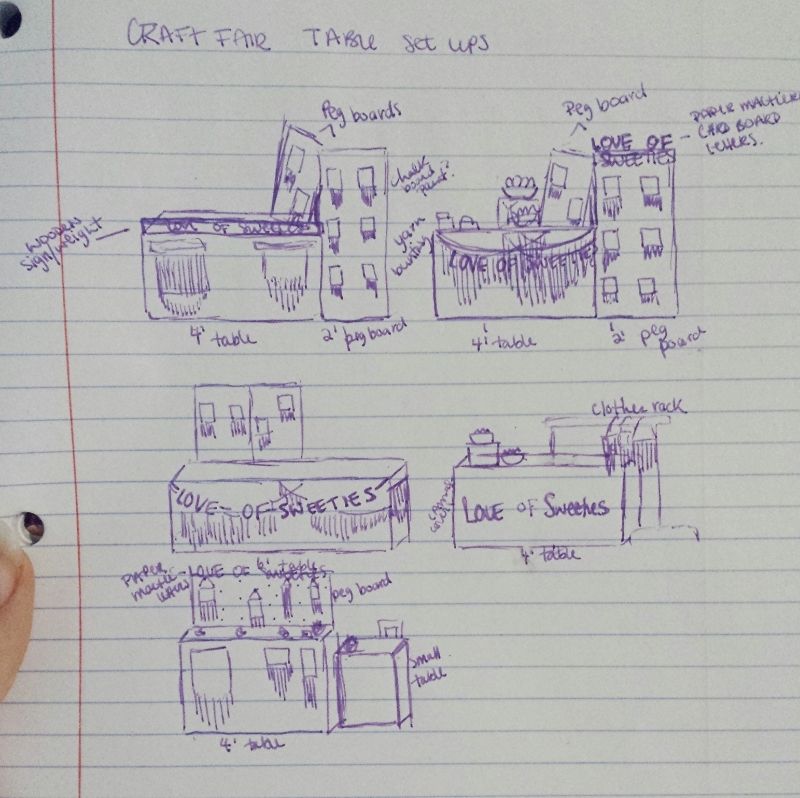 CRAFT FAIR TABLE Set ups
Peg boards
Peg board
LOVE OF
SWEETIES
PAPER MACHIER
CARD BOARD
LETTERS.
Chalk
board
paint?
Wooden
sign/weight
LOVE OF SWEETIES
yarn
bunting
LOVE OF SWEETIES
4' table
2' pegboard
4' table
2' peg
board
Clothes rack
LOVE OF SWEETIES
Love of Sweeties
4' table
6' table
PAPER
MACHE
LOVE OF SWEETIES
peg board
small
table
4' table